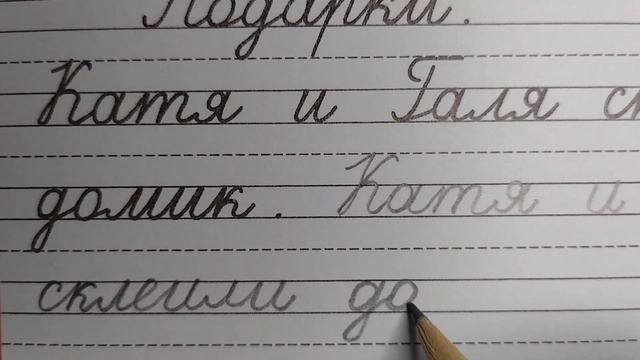 Подарки.
Катя и Галя
домик. Катя и
склеили до